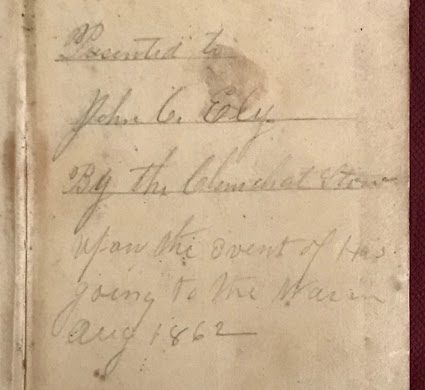 Presented to
John C. Ely
By the Church at Stow
upon the Event of His
going to the War in
Aug 1862